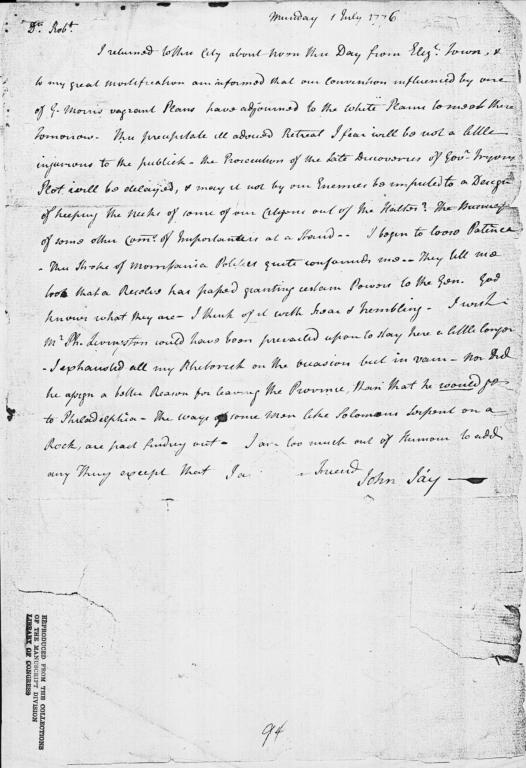 Munday 1 July 1776
Dr. Robt.
I returned to this City about Noon this Day from Elizt. Town, &
to my great mortification am informed that our Convention influenced by one
of G. Morris vagrant Plans have adjourned to the White Plains to meet there
tomorrow - This precipitate ill advised Retreat I fear will be not a little
injurious to the publick - the Prosecution of the late Discoveries of Govr. Tryons
Plot will be delayed, & may it not by our Enemies be imputed to a Design
of keeping the Necks of some of our Citizens out of the Halter? The Business
of some other Comt. of Importance is at a Stand -- I begin to loose Patience
- This Stroke of Morrisania Politics quite confounds me -- They tell me
too that a Resolve has passed granting certain Powers to the Gen. God
knows what they are - I think of it with Fear & Trembling - I wish
Mr. Ph. Livingston could have been prevailed upon to stay here a little longer
- I exhausted all my Rhetorick on the occasion but in vain - nor did
he assign a better Reason for leaving the Province, than that he would go
to Philadelphia - The ways of some Men like Solomons Serpent on a
Rock, are past finding out - I am too much out of Humour to add
any Thing except that I a Friend
John Jay
94
REPRODUCED FROM THE COLLECTIONS
OF THE MANUSCRIPT DIVISION
LIBRARY OF CONGRESS